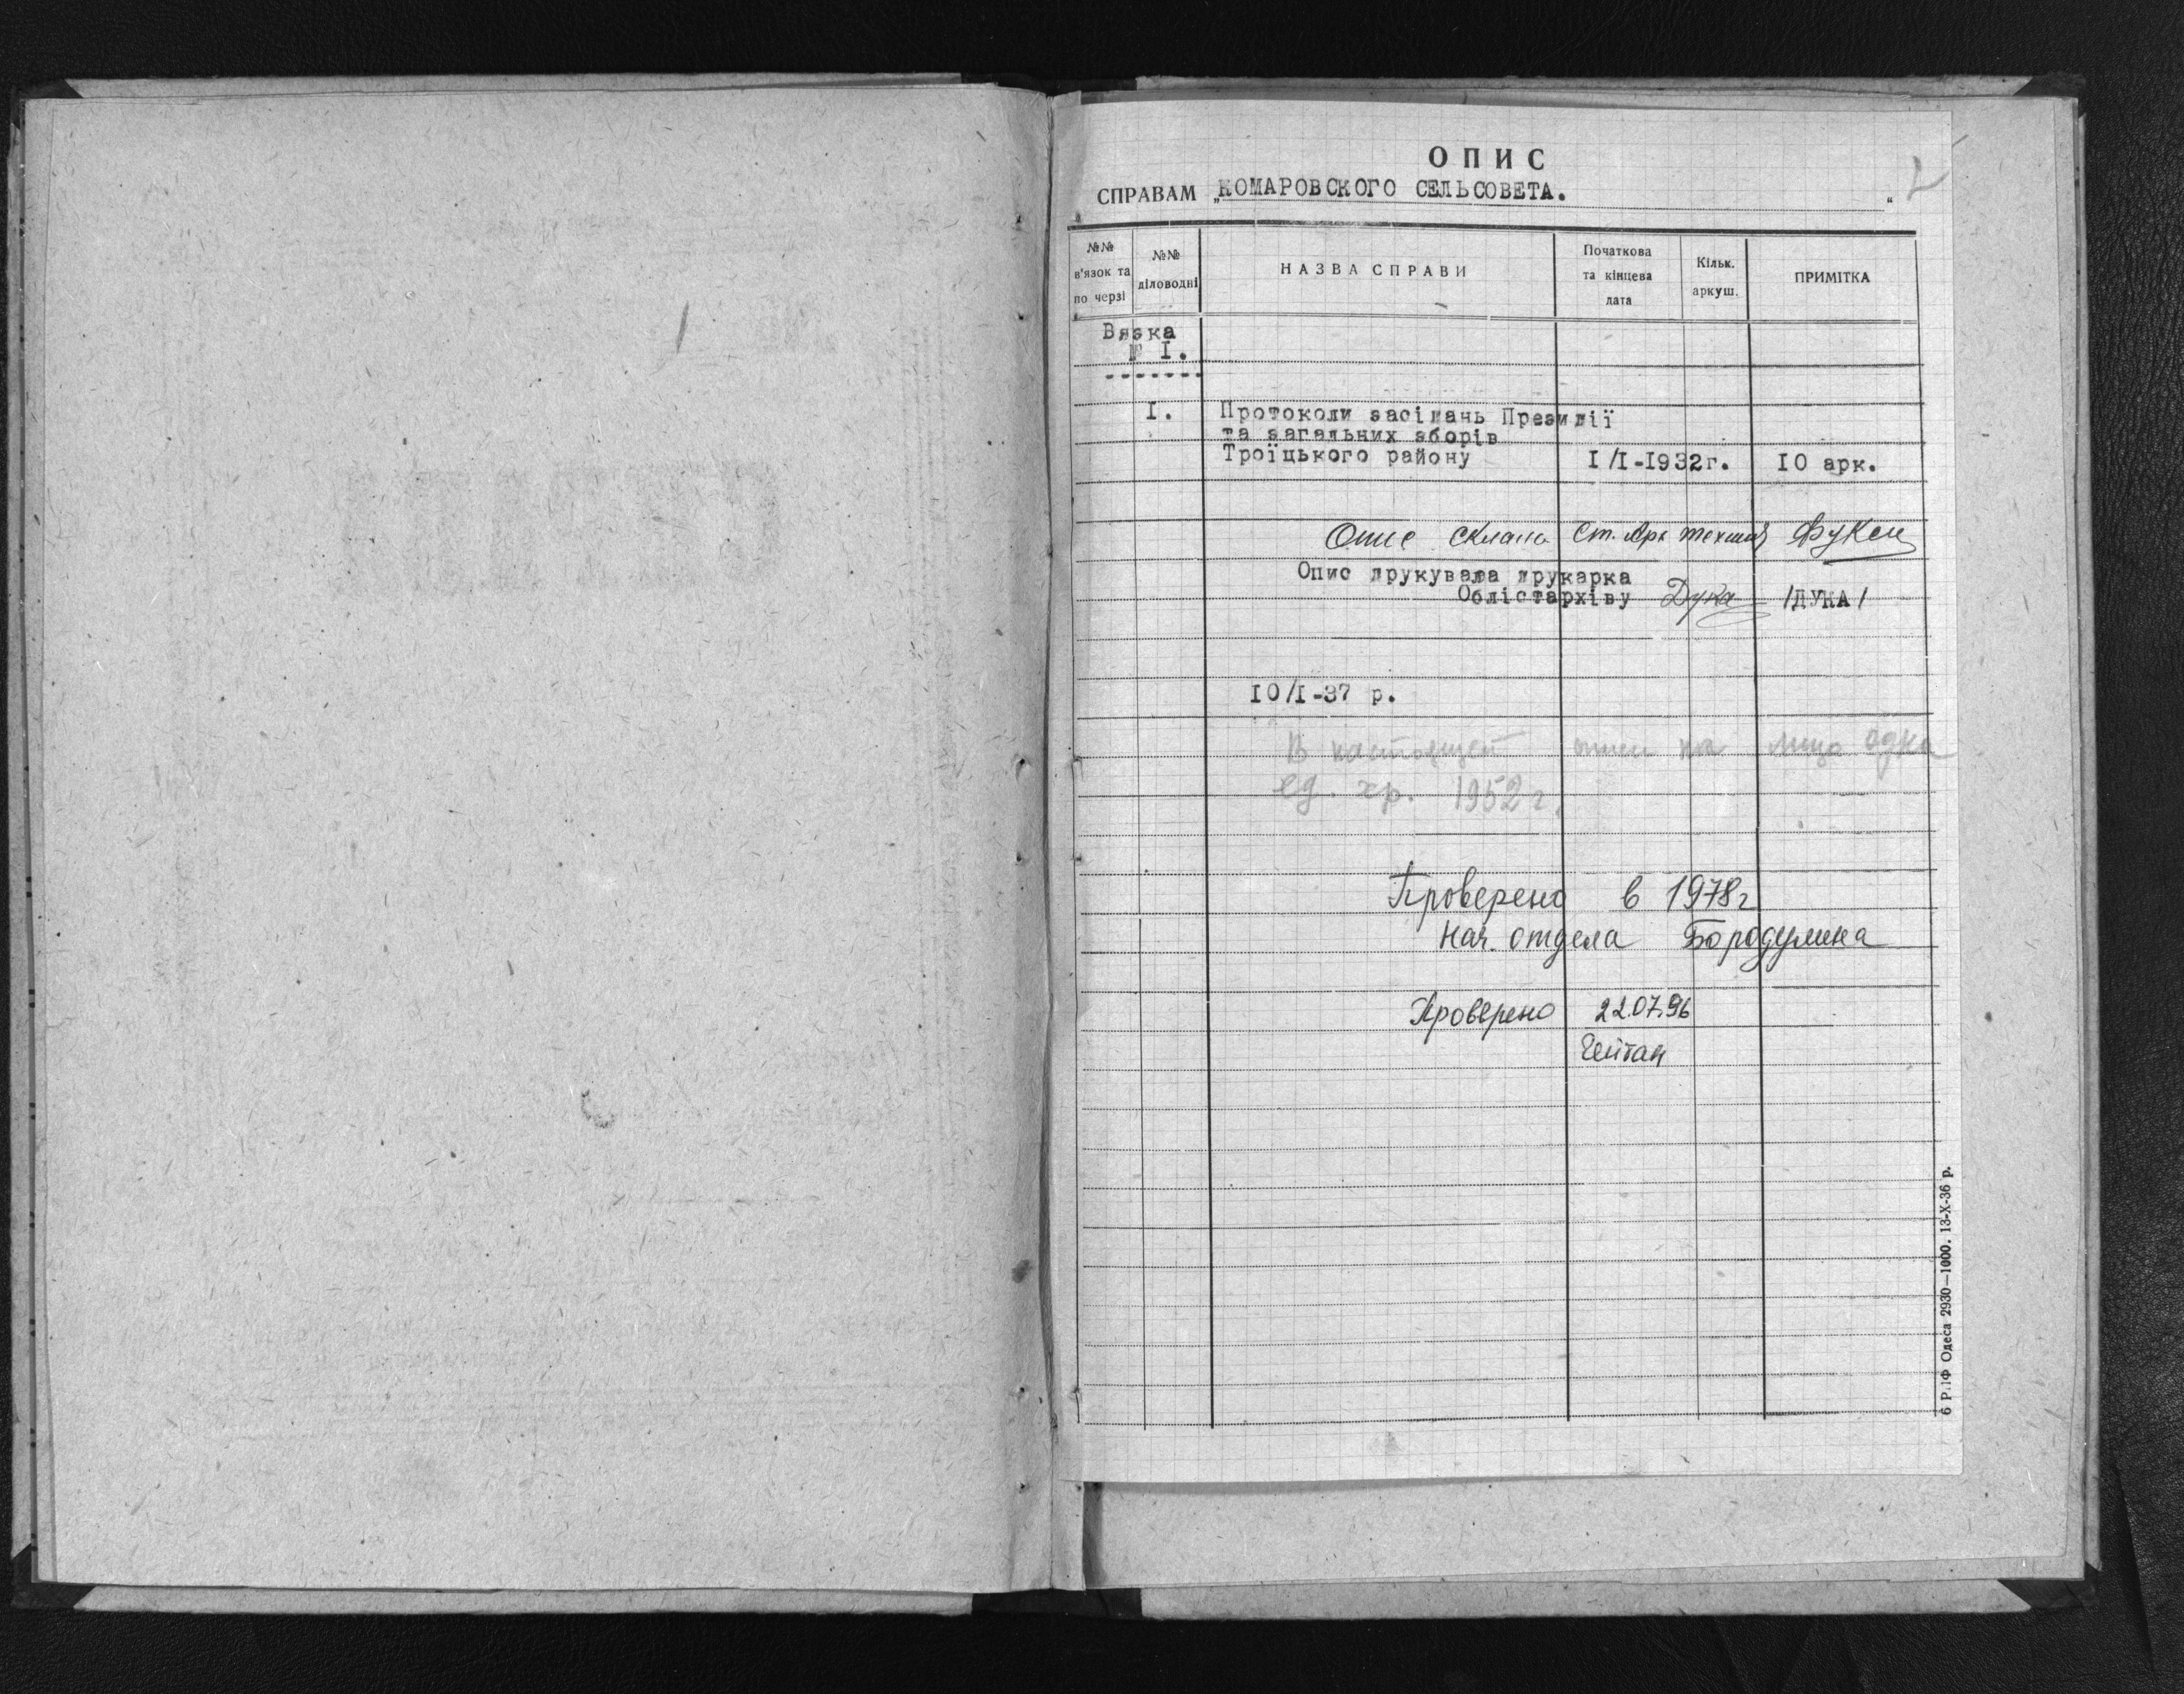 ОПИС
СПРАВАМ „КОМАРОВСКОГО СЕЛЬСОВЕТА. “
№№ в'язок та по черзі
№№ діловодні
НАЗВА СПРАВИ
Початкова та кінцева дата
Кільк. аркуш.
ПРИМІТКА
Вязка
№ I.
-------
I. Протоколи засідань Президії
та загальних зборів
Троїцького району I/I-1932г. 10 арк.
Опис склала Ст. Арх технік
Опис друкувала друкарка
Облістархіву Дука /ДУКА/
10/I-37 р.
В настоящей описи на лицо одна
ед. хр. 1952 г.
Проверено в 1978 г
Нач. отдела Бородулина
Проверено 22.07.96
Одеса 2930—1000. 13-X-36 р.